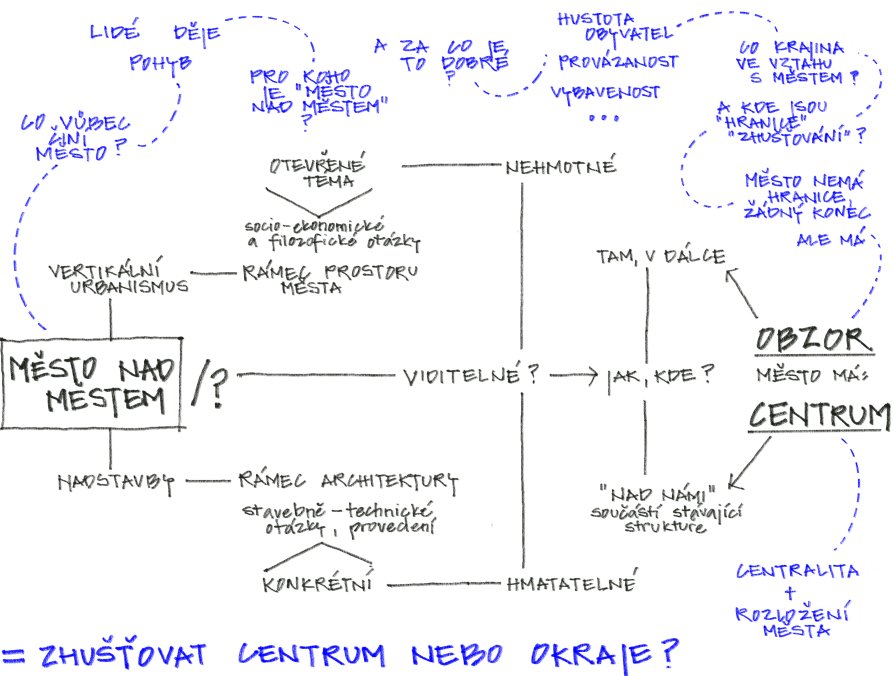 LIDÉ DĚJE
POHYB
CO VŮBEC
ČINÍ
MĚSTO?
PRO KOHO
JE "MĚSTO
NAD MĚSTEM"
?
A ZA CO JE
TO DOBRÉ
?
HUSTOTA
OBYVATEL
PROVÁZANOST
VYBAVENOST
...
CO KRAJINA
VE VZTAHU
S MĚSTEM?
A KDE JSOU
"HRANICE"
"ZHUŠŤOVÁNÍ"?
MĚSTO NEMÁ
HRANICE,
ŽÁDNÝ KONEC
ALE MÁ
OTEVŘENÉ
TÉMA
NEHMOTNÉ
socio-ekonomické
a filozofické otázky
VERTIKÁLNÍ
URBANISMUS
RÁMEC PROSTORU
MĚSTA
TAM, V DÁLCE
OBZOR
MĚSTO MÁ:
CENTRUM
MĚSTO NAD
MĚSTEM
/?
VIDITELNÉ?
JAK, KDE?
NADSTAVBY
RÁMEC ARCHITEKTURY
stavebně-technické
otázky, provedení
"NAD NÁMI"
součástí stávající
struktuře
KONKRÉTNÍ
HMATATELNÉ
CENTRALITA
+
ROZLOŽENÍ
MĚSTA
= ZHUŠŤOVAT CENTRUM NEBO OKRAJE?